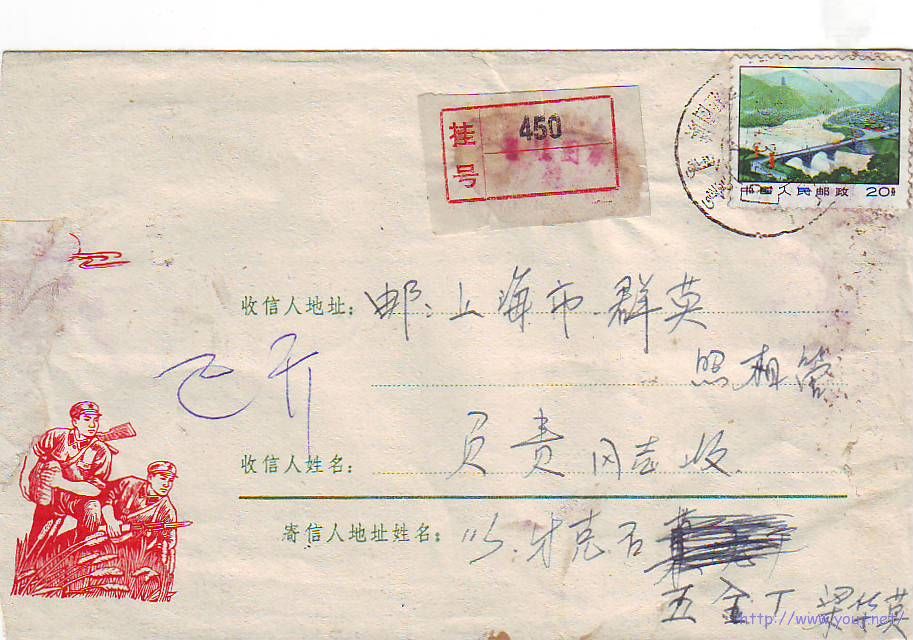 挂号
450
中国人民邮政 20分
收信人地址: 邮: 上海市群英
照相管
收信人姓名: 负责同志收
寄信人地址姓名: 牙克石
五金厂 梁华英
http://www.youf.net/